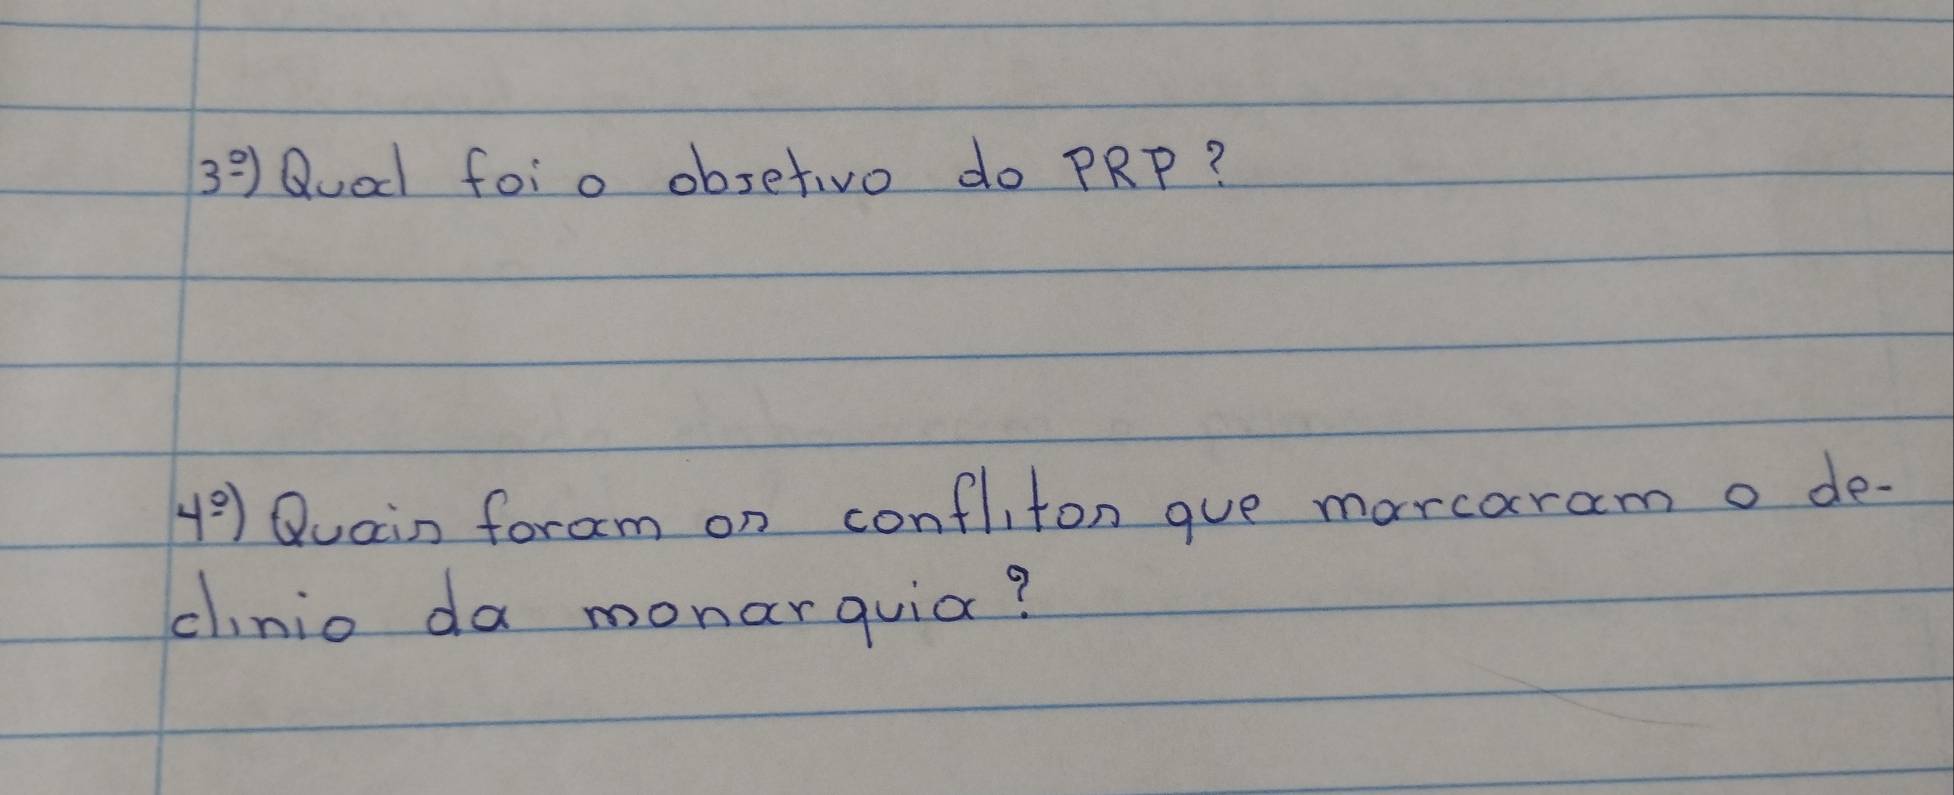 3º) Qual foi o objetivo do PRP?
4º) Quais foram os conflitos que marcaram o de-
clinio da monarquia?